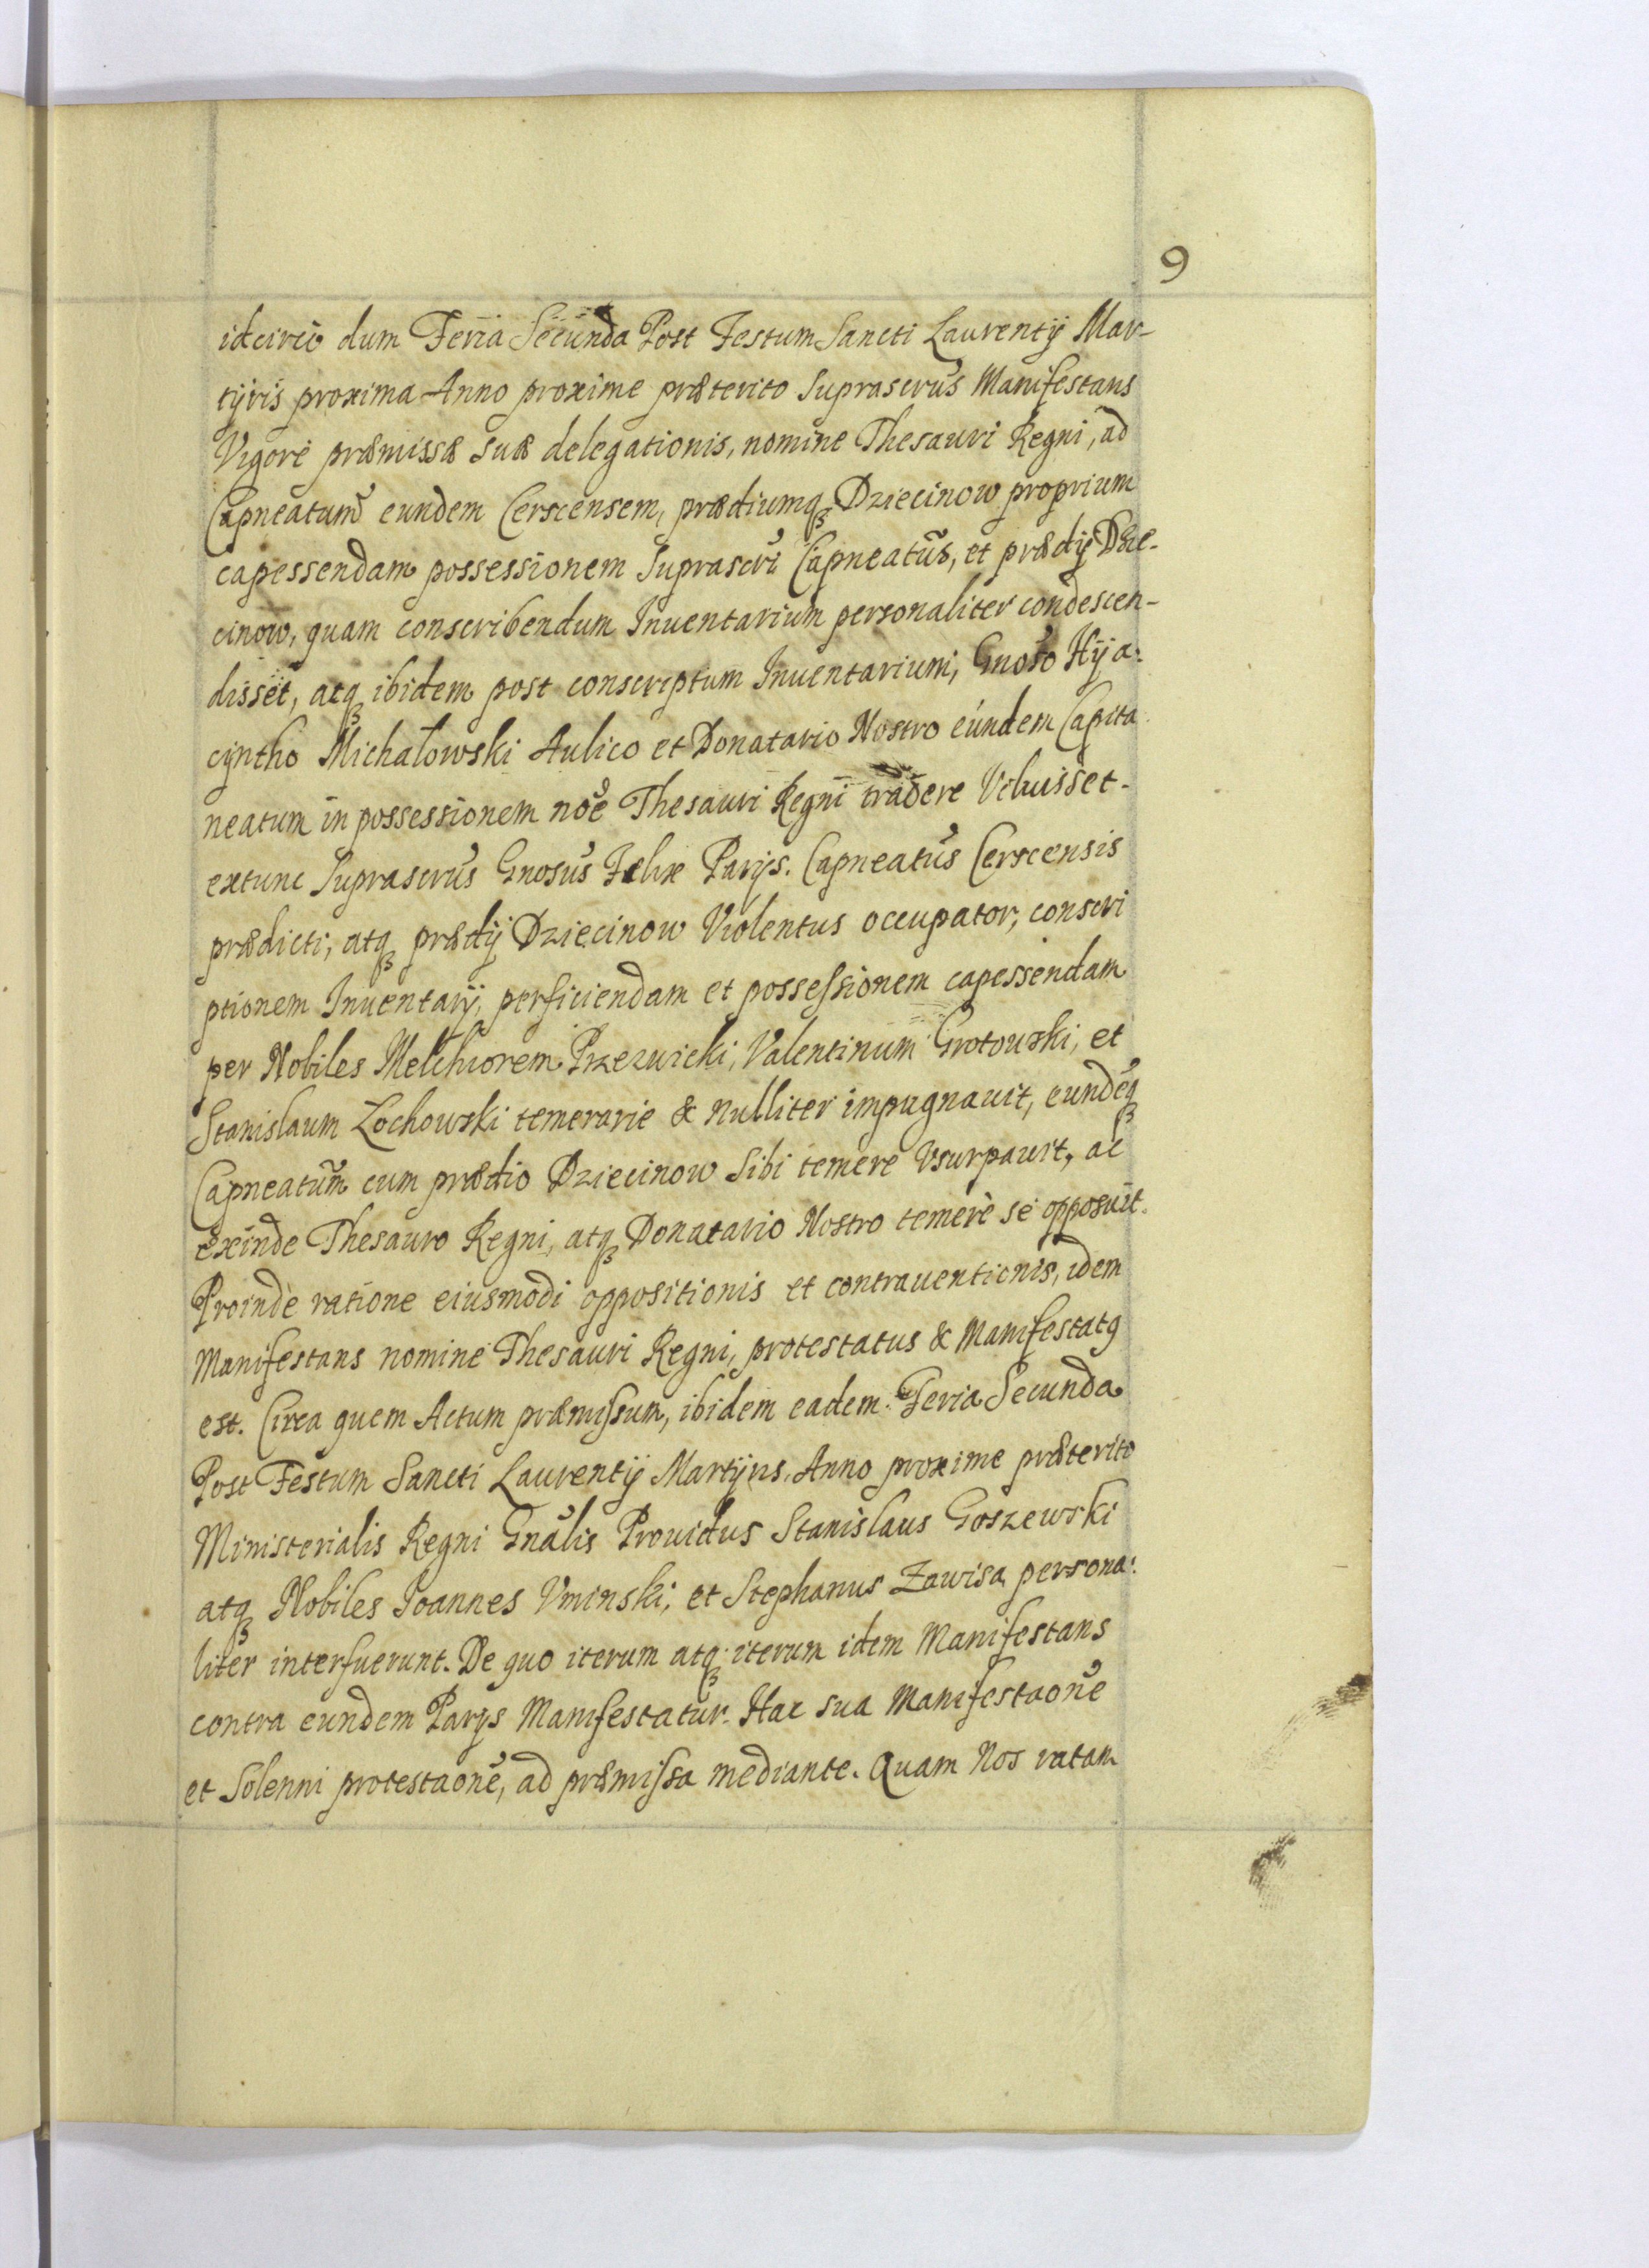 9
idcirco dum Feria Secunda Post Festum Sancti Laurentÿ Mar-
tÿris proxima Anno proxime præterito Suprascrus Manifestans
Vigore præmissæ suæ delegationis, nomine Thesauri Regni, ad
Capneatum eundem Cerscensem, prædiumqꝫ Dziecinow proprium
capessendam possessionem Suprascri Capneatus, et prædÿ Dzie-
cinow, quam conscribendum Inuentarium personaliter condescen-
disset, atqꝫ ibidem post conscriptum Inuentarium, Gnoso Hÿa-
cÿntho Michałowski Aulico et Donatario Nostro eundem Capita
neatum in possessionem noe Thesauri Regni tradere Voluisset.
extunc Suprascrus Gnosus Felix Parÿs. Capneatus Cerscensis
prædicti, atqꝫ prædÿ Dziecinow Violentus occupator, conscri
ptionem Inuentarÿ, perficiendam et possessionem capessendam
per Nobiles Melchiorem Przezwicki, Valentinum Grotowski, et
Stanislaum Lochowski temerarie & nulliter impugnauit, eundeqꝫ
Capneatum cum prædio Dziecinow Sibi temere Vsurpauit, ac
exinde Thesauro Regni, atqꝫ Donatario Nostro temerè se opposuit.
Proinde ratione eiusmodi oppositionis et contrauentionis, idem
Manifestans nomine Thesauri Regni, protestatus & Manifestatꝰ
est. Circa quem Actum præmissum, ibidem eadem Feria Secunda
Post Festum Sancti Laurentÿ Martÿris, Anno proxime præterito
Ministerialis Regni Gnalis Prouidus Stanislaus Goszewski
atqꝫ Nobiles Joannes Vminski, et Stephanus Zawisa, persona-
liter interfuerunt. De quo iterum atqꝫ iterum idem Manifestans
contra eundem Parÿs Manifestatur. Hac sua Manifestaone
et Solenni protestaone, ad præmissa mediante. Quam Nos ratam